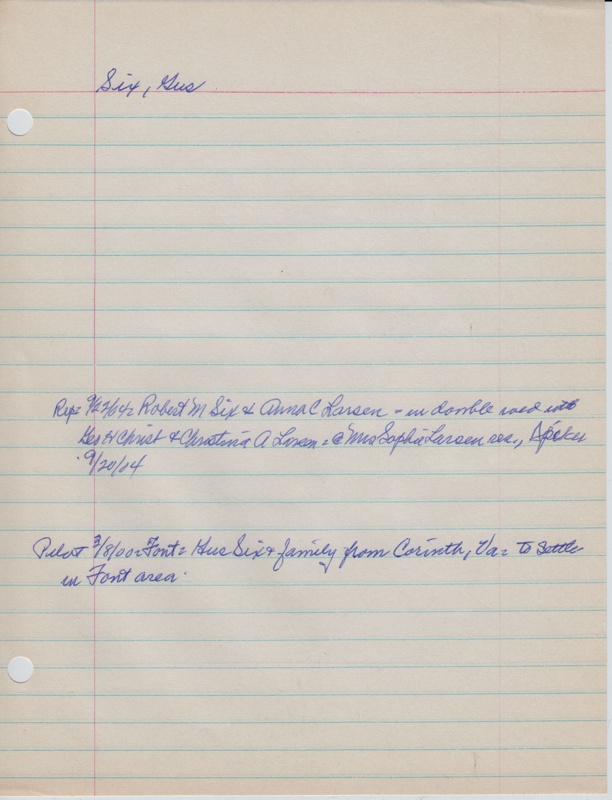 Six, Gus
Rep= 9/22/04= Robert M Six & Anna C Larsen - in double
Geo H Christ & Christina A Larsen = @ Mrs Sophia Larsen res.,
9/20/04
Pilot 3/8/00= Font= Gus Six & family from Corinth, Va= to settle
in Font area.